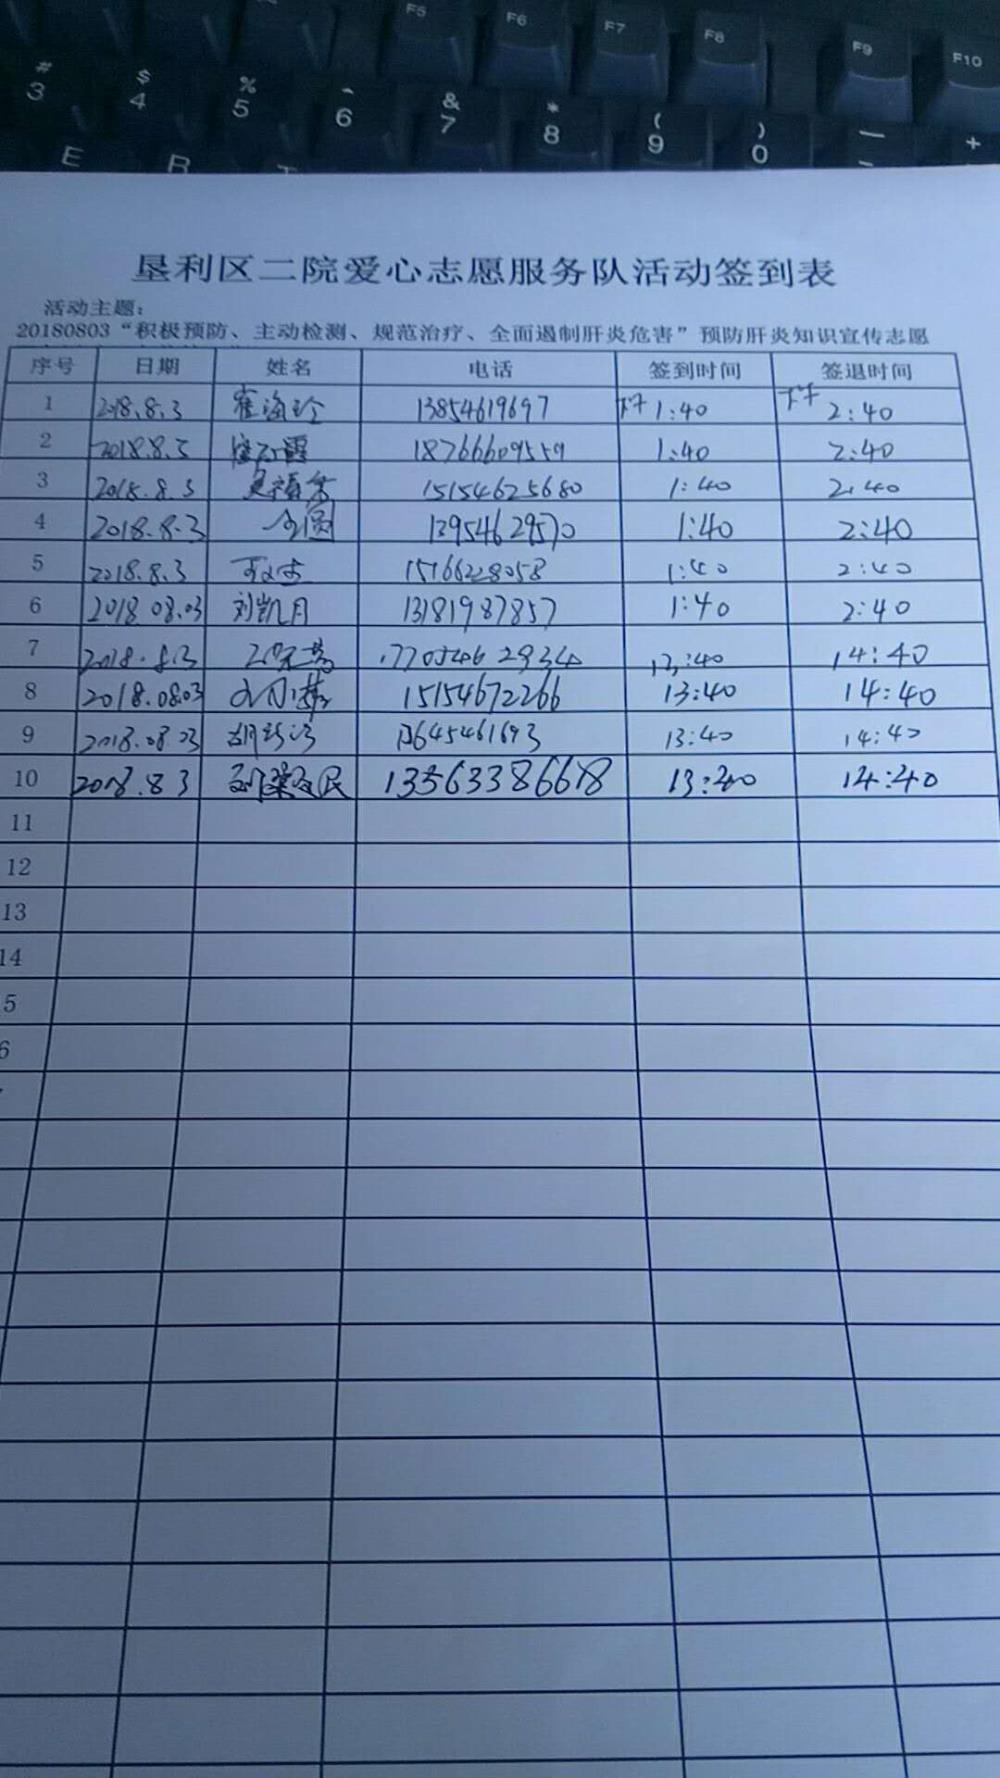 F5 F6 F7 F8 F9 F10
# $ % ^ & * ( ) — +
3 4 5 6 7 8 9 0 –
E R T
垦利区二院爱心志愿服务队活动签到表
活动主题：
20180803“积极预防、主动检测、规范治疗、全面遏制肝炎危害”预防肝炎知识宣传志愿
序号 日期 姓名 电话 签到时间 签退时间
1 2018.8.3 崔海玲 13854619697 下午1:40 下午2:40
2 2018.8.3 18766609559 1:40 2:40
3 2018.8.3 15154625680 1:40 2:40
4 2018.8.3 13954629570 1:40 2:40
5 2018.8.3 15166228058 1:40 2:40
6 2018 08.03 刘凯月 13181987857 1:40 2:40
7 2018.8.3 17705462934 13:40 14:40
8 2018.08.03 15154672266 13:40 14:40
9 2018.08.03 13645461693 13:40 14:40
10 2018.8 3 13563386618 13:40 14:40
11
12
13
14
5
6